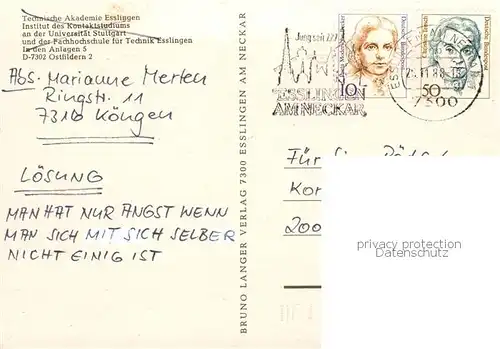 Technische Akademie Esslingen
Institut des Kontaktstudiums
an der Universität Stuttgart
und der Fachhochschule für Technik Esslingen
In den Anlagen 5
D-7302 Ostfildern 2
Abs. Marianne Merten
Ringstr. 11
7316 Köngen
LÖSUNG
MAN HAT NUR ANGST WENN
MAN SICH MIT SICH SELBER
NICHT EINIG IST
BRUNO LANGER VERLAG 7300 ESSLINGEN AM NECKAR
Jung seit 777
ESSLINGEN
AM NECKAR
10
Deutsche Bundespost
50
Deutsche Bundespost
7300
Für
Kor
200
privacy protection
Datenschutz